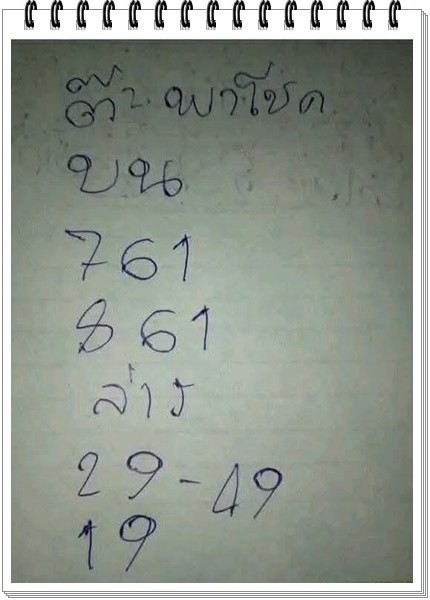 ต๊ะ พาโชค
บน
761
861
ล่าง
29-49
19